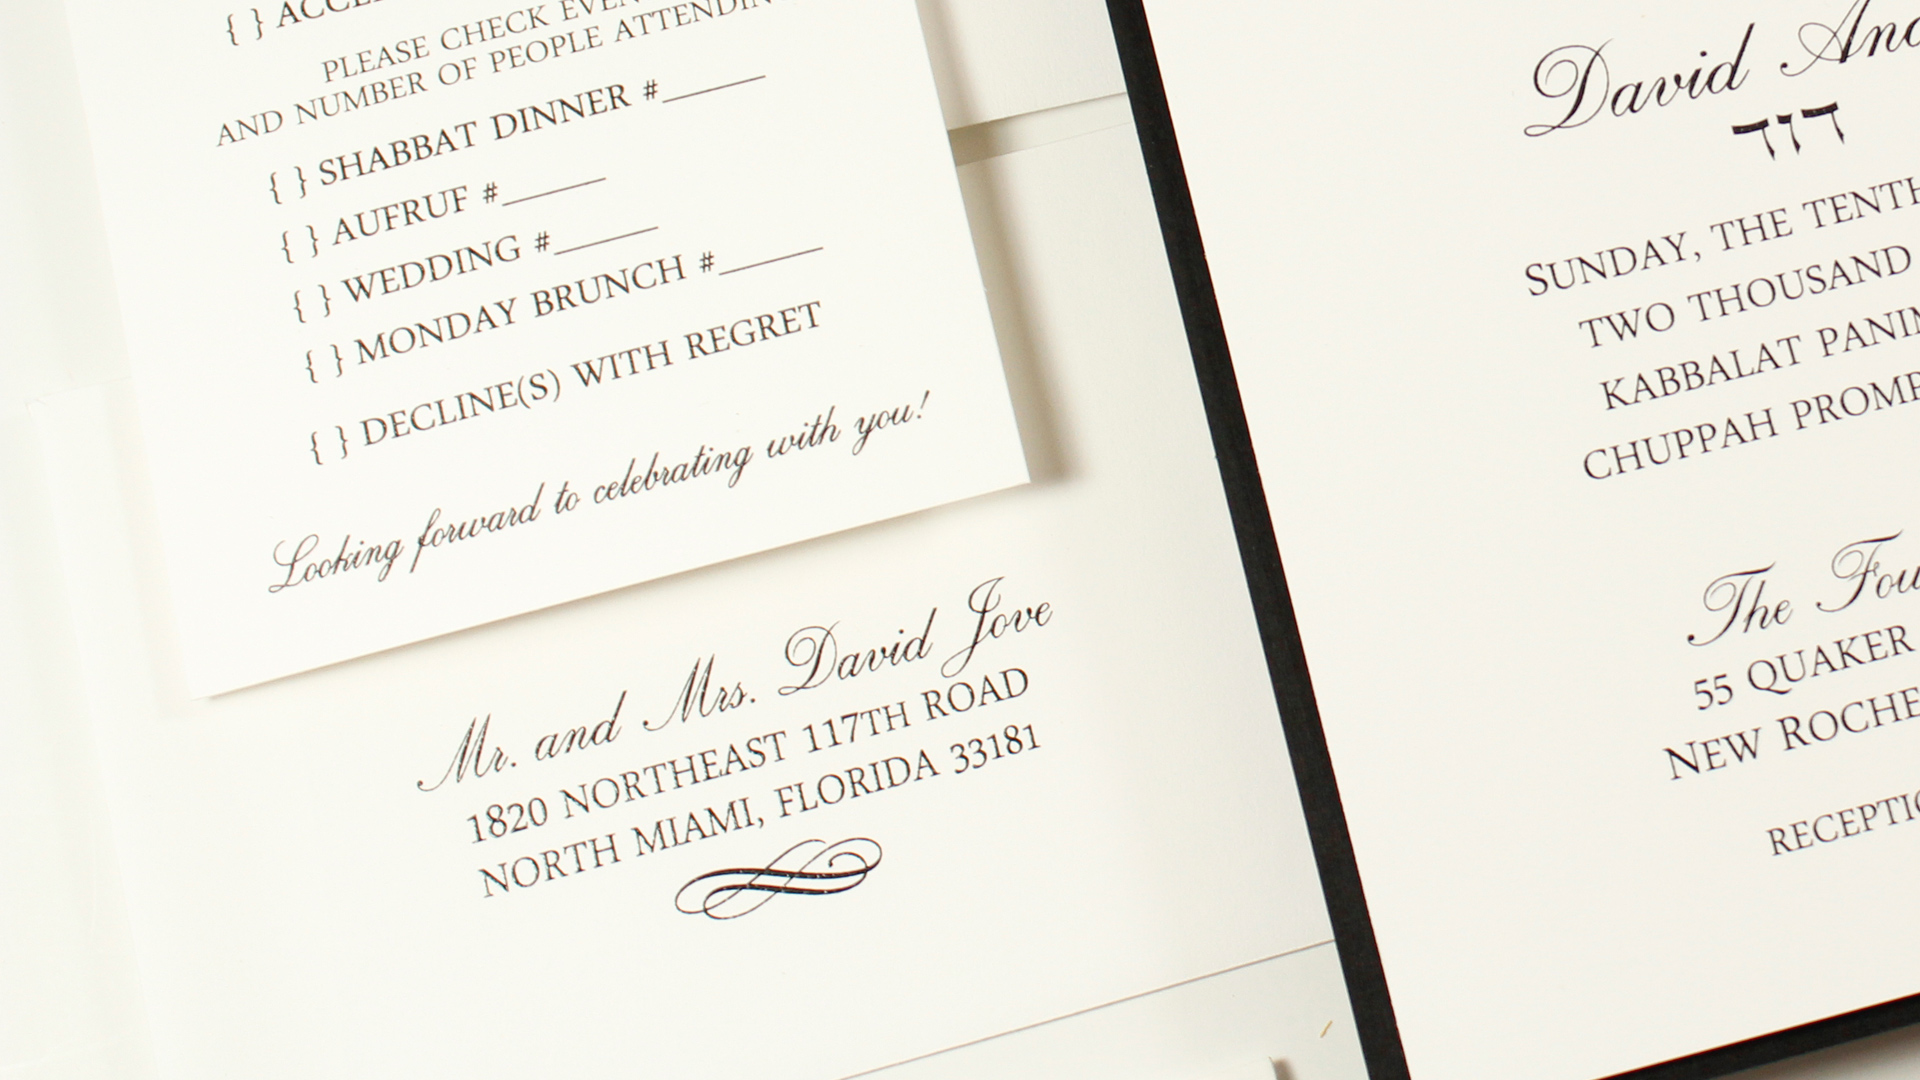 { }
PLEASE CHECK
AND NUMBER OF PEOPLE
{ } SHABBAT DINNER #______
{ } AUFRUF #______
{ } WEDDING #______
{ } MONDAY BRUNCH #______
{ } DECLINE(S) WITH REGRET
Looking forward to celebrating with you!
Mr. and Mrs. David Jove
1820 NORTHEAST 117TH ROAD
NORTH MIAMI, FLORIDA 33181
David
דוד
SUNDAY, THE TENTH
TWO THOUSAND
KABBALAT
CHUPPAH
The
55 QUAKER
NEW